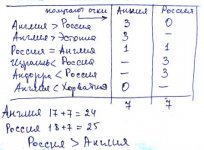 получают очки Англия Россия
Англия > Россия 3 0
Англия > Эстония 3 –
Россия = Англия 1 1
Израиль < Россия – 3
Андорра < Россия – 3
Англия < Хорватия 0 –
7 7
Англия 17+7=24
Россия 18+7=25
Россия > Англия